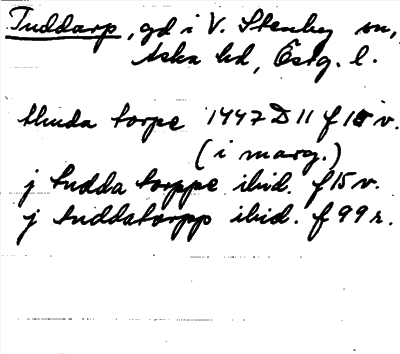 Tuddarp, gd i V. Stenby sn,
Aska hd, Östg. l.
thuda torpe 1447 D 11 f 15 v.
(i marg.)
j tudda torppe ibid. f 15 v.
j tuddatorpp ibid. f 99 r.